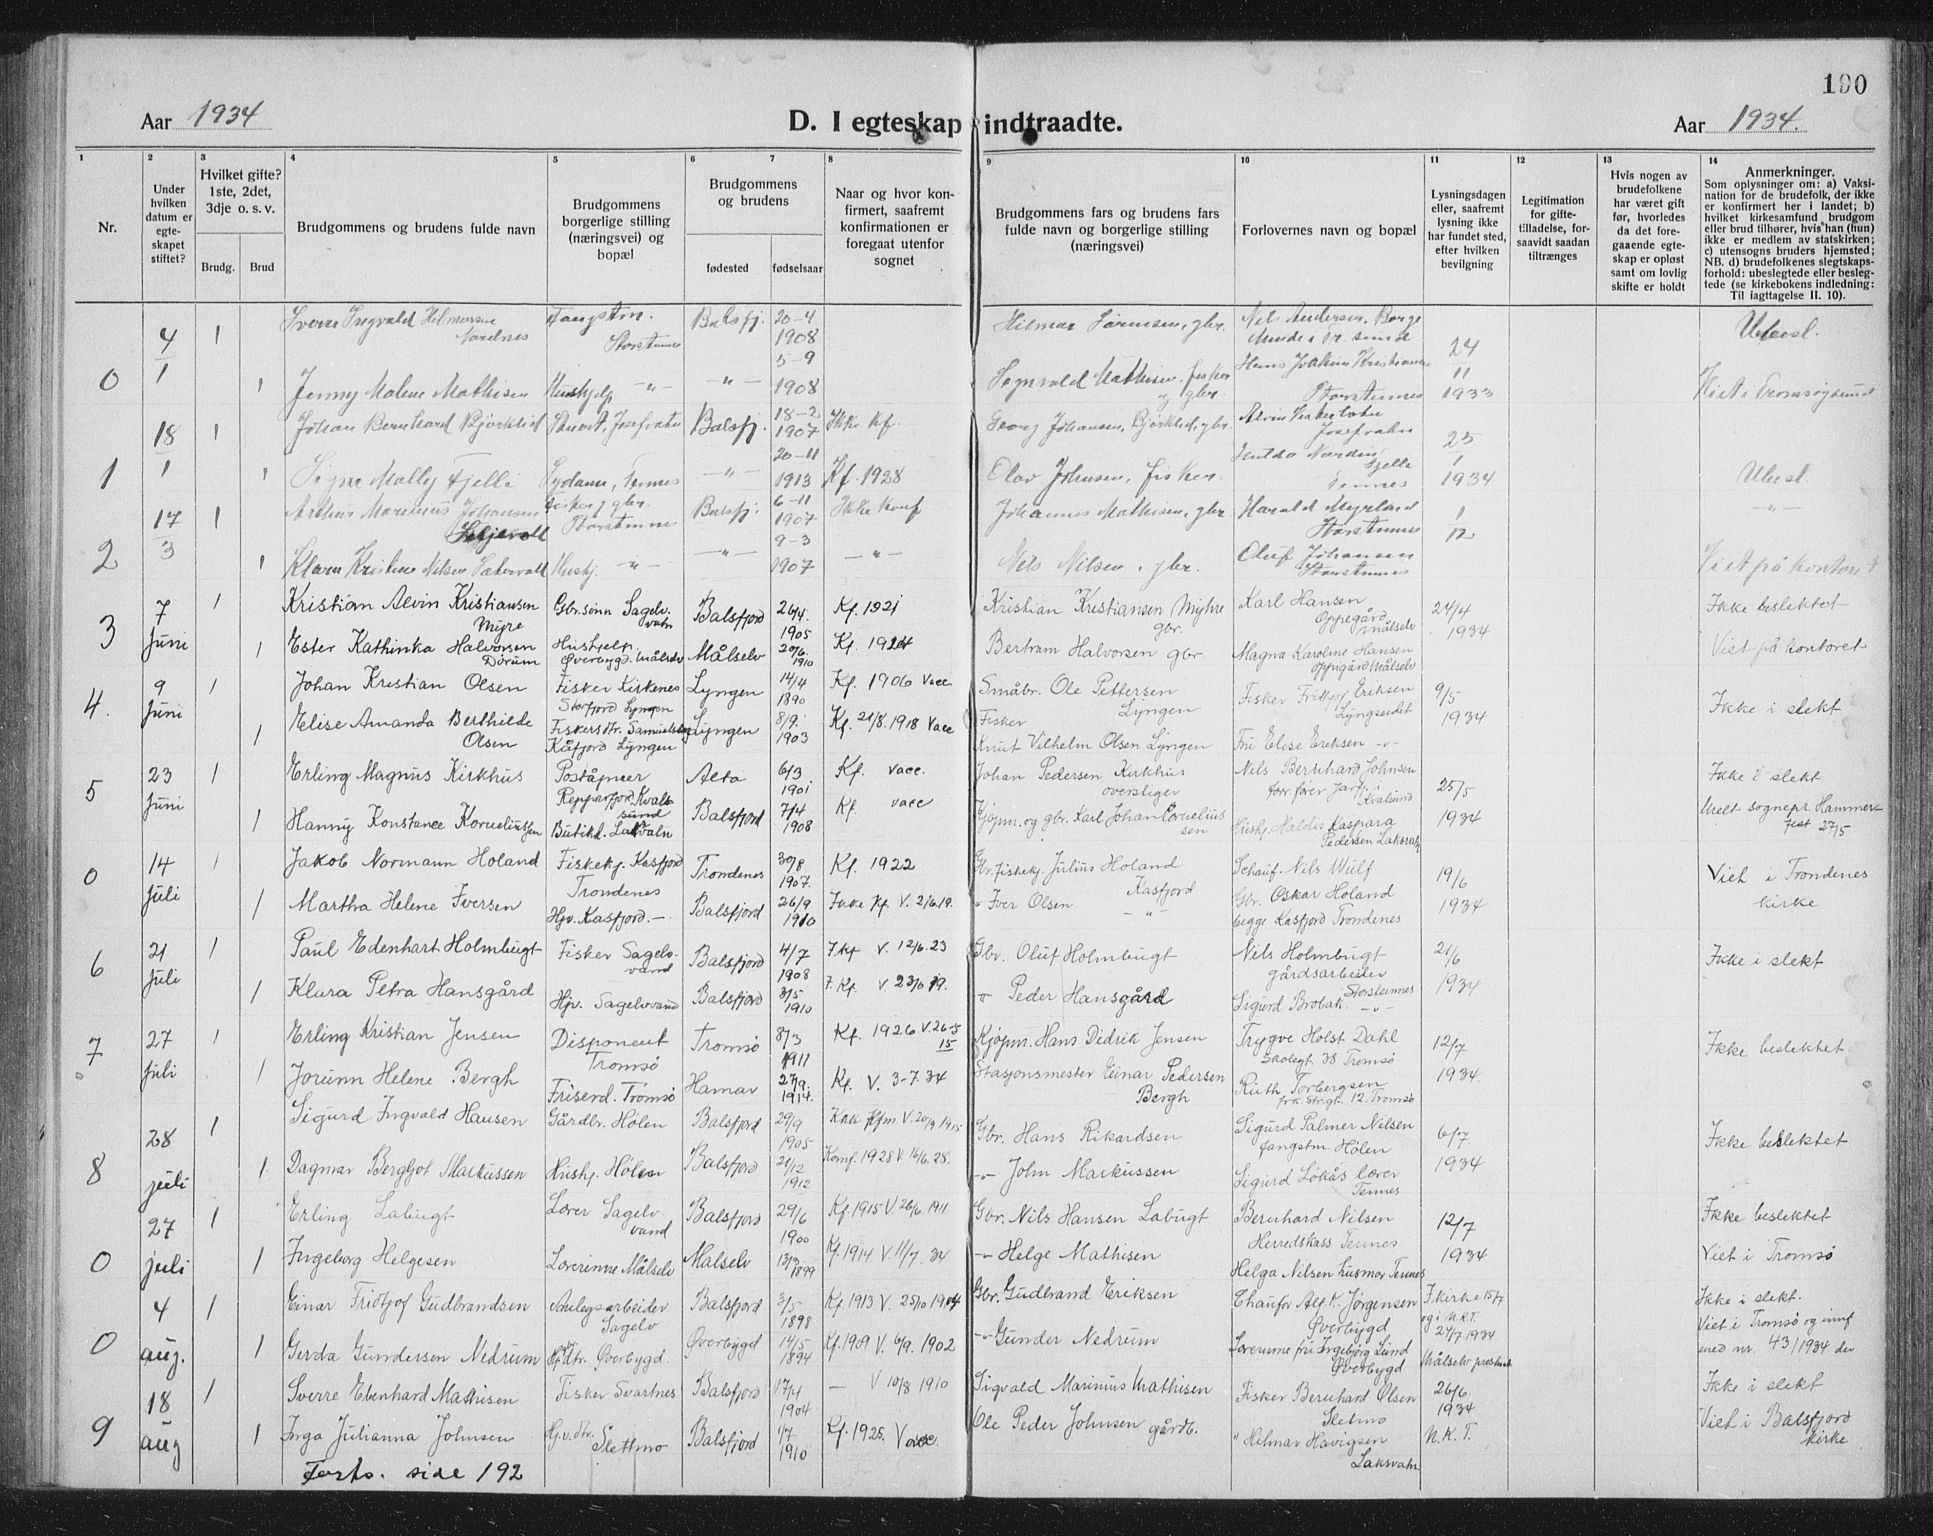 190
Aar 1934
D. I egteskap indtraadte.
Aar 1934.
1 2 3 4 5 6 7 8 9 10 11 12 13 14
Nr.
Under hvilken datum er egte-skapet stiftet?
Hvilket gifte? 1ste, 2det, 3dje o. s. v.
Brudg. Brud
Brudgommens og brudens fulde navn
Brudgommens borgerlige stilling (næringsvei) og bopæl
Brudgommens og brudens
fødested fødselsaar
Naar og hvor kon-firmert, saafremt konfirmationen er foregaat utenfor sognet
Brudgommens fars og brudens fars fulde navn og borgerlige stilling (næringsvei)
Forlovernes navn og bopæl
Lysningsdagen eller, saafremt lysning ikke har fundet sted, efter hvilken bevilgning
Legitimation for gifte-tilladelse, for-saavidt saadan tiltrænges
Hvis nogen av brudefolkene har været gift før, hvorledes da det fore-gaaende egte-skap er opløst samt om lovlig skifte er holdt
Anmerkninger. Som oplysninger om: a) Vaksi-nation for de brudefolk, der ikke er konfirmert her i landet; b) hvilket kirkesamfund brudgom eller brud tilhører, hvis han (hun) ikke er medlem av statskirken; c) utensogns bruders hjemsted; NB. d) brudefolkenes slegtskaps-forhold: ubeslegtede eller besleg-tede (se kirkebokens indledning: Til iagttagelse II. 10).
0 4/1 1 Sverre Ingvald Hilmarsen Nordnes Fangstm. Storstennes Balsfj. 20-4 1908 Hilmar Sørensen, gbr. Nils Andersen, 24/11 1933 Ubesl.
1 Jenny Malene Mathisen Hushjelp -"- -"- 5-9 1908 Sigvald Mathisen, fisker og gbr. Hans Joakim Kristiansen Storstennes Viet i Tromsøysund
1 18/1 1 Johan Bernhard Bjørklid Josefvatn Balsfj. 18-2 1907 Ikke kf. Georg Johansen, Bjørklid, gbr. Alvin Josefvatn 25/1 1934 Ubesl.
1 Signe Molly Fjelli Sydame, Tennes -"- 20-11 1913 Kf. 1928 Olav Johnsen, fisker. Hulda Tennes
2 17/3 1 Arthur Marinius Johansen Fisker, gbr. Storstennes Balsfj. 6-11 1907 Ikke konf Johannes Mathisen, gbr. Harald Myrland Storstennes 1/12 -"-
1 Klara Kristine Nilsen Sætervoll Hushj. -"- -"- 9-3 1907 -"- Nils Nilsen, gbr. Oluf Johansen Storstennes Viet på kontoret
3 7 Juni 1 Kristian Alvin Kristiansen Myre Gbr.sønn Sagelv-vatn Balsfjord 26/4. 1905 Kf. 1921 Kristian Kristiansen Myhre gbr. Karl Hansen Oppegård Målselv 24/4 1934 Ikke beslektet
1 Ester Kathinka Halvorsen Dørum Hushjelp. Øverbygd Målselv Målselv 20/6. 1910 Kf. 1924 Bertram Halvorsen gbr. Magna Karoline Hansen Oppigård Målselv Viet på kontoret
4. 9 Juni 1 Johan Kristian Olsen Fisker Kirkenes Storfjord Lyngen Lyngen 14/4 1890 Kf. 1906 Vacc Småbr. Ole Pettersen Lyngen Fisker Fritjof Eriksen Lyngseidet 9/5 1934 Ikke i slekt
1 Elise Amanda Berthilde Olsen Fiskersdtr. Kåfjord Lyngen Lyngen 8/9. 1903 Kf. 21/8. 1918 Vacc Fisker Knut Vilhelm Olsen Lyngen Fru Elise Eriksen -"-
5 23 Juni 1 Erling Magnus Kirkhus Poståpner Repparfjord Kvalsund Alta 6/3 1901 Kf. vacc. Johan Pedersen Kirkhus oversliger Nils Bernhard Johnsen Kvalsund 25/5 1934 Ikke i slekt
1 Hanny Konstance Korneliussen Butikd. Laksvatn Balsfjord 7/4 1908 Kf. vacc Kjøpm. og gbr. Karl Johan Corneliussen Hushj. Haldis Kaspara Pedersen Laksvatn Utelt sognepr Hammerfest 27/5
0 14 Juli 1 Jakob Normann Holand Fiskekj. Kasfjord Trondenes Trondenes 30/8 1907. Kf. 1922 Gbr. fiskekj. Julius Holand Kasfjord Schauf. Nils Wulf 19/6 1934 Viet i Trondenes kirke
1 Martha Helene Iversen Hjv. Kasfjord. -"- Balsfjord 26/9 1910 Ikke Kf. V. 2/6.19. " Iver Olsen -"- Gbr. Oskar Holand begge Kasfjord Trondenes
6 21 Juli 1 Paul Edenhart Holmbugt Fisker Sagelv-vand Balsfjord 4/7 1908 I. Kf V. 12/6.23 Gbr. Oluf Holmbugt Nils Holmbugt gårdsarbeider Storsteinnes 21/6 1934 Ikke i slekt
1 Klara Petra Hansgård Hjv. Sagelvvand Balsfjord 3/5 1910 I. Kf. V 23/6 19. " Peder Hansgård Sigurd Brobak -"-
7 27 Juli 1 Erling Kristian Jensen Disponent Tromsø Tromsø 8/3 1911 Kf. 1926 V. 26-5 15 Kjøpm. Hans Didrik Jensen Trygve Holst Dahl Skolegt 38 Tromsø 12/7 1934. Ikke beslektet
1 Jorunn Helene Bergh Friserd. Tromsø Hamar 27/9. 1914. Kf. V. 3-7.34 Stasjonsmester Einar Pedersen Bergh Ruth Torbergsen 12. Tromsø
8 28 juli 1 Sigurd Ingvald Hansen Gårdbr. Hølen Balsfjord 29/9 1905 V. 20/9 1915 Gbr. Hans Rikardsen Sigurd Palmer Nilsen fangstm. Hølen 6/7 1934 Ikke beslektet
1. Dagmar Bergljot Markussen Hushj. Hølen Balsfjord 21/12 1912 Konf. 1928 V 16/6.28. -"- John Markussen Sigurd Løkås lærer Tennes
0 27 juli 1 Erling Labugt Lærer Sagelv-vand Balsfjord 29/6 1900 Kf. 1915 V. 26/6 1911 Gbr. Nils Hansen Labugt Bernhard Nilsen Herredskass Tennes 12/7 1934 Ikke beslektet
1 Ingeborg Helgesen Lærerinne Målselv Målselv 13/3 1899 Kf. 1914 V. 11/7. 34 -"- Helge Mathisen Helga Nilsen husmor Tennes Viet i Tromsø
0 4 aug. 1 Einar Fridtjof Gudbrandsen Anlegsarbeider Sagelv Balsfjord 3/5 1898 Kf. 1913 V. 25/10 1904 Gbr. Gudbrand Eriksen Chaufør Alf. K. Jørgensen Øverbygd I. kirke 15/7 og i N.K.T. 24/7 1934 Ikke i slekt. Viet i Tromsø og innf med nr. 43/1934 der
1 Gerda Gundersen Nedrum Øverbygd. Øverbygd 14/5 1894 Kf. 1909 V. 6/9. 1902 -"- Gunder Nedrum Lærerinne frk Ingebjørg Lund Øverbygd Målselv prestek
9 18 aug 1 Sverre Edenhard Mathisen Fisker Svartnes Balsfjord 17/4 1904 — V 10/8 1910 Sigvald Marinius Mathisen Fisker Bernhard Olsen Sletmo 26/6 1934 Ikke i slekt
1 Inga Julianna Johnsen Hjv. dtr. Slettmo Balsfjord 1/7 1910 Kf. 1925. Vacc. Ole Peder Johnsen gårdb. " Hilmar Havigsen Laksvatn. N.K.T. Viet i Balsfjord kirke
Forts. side 192